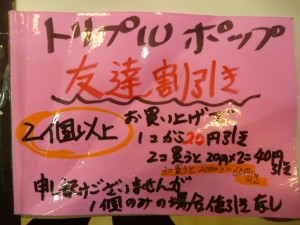 トリプルポップ
友達割引き
2個以上
お買い上げで
1コが20円引き
2コ買うと20円×2=40円引き
申し訳ございませんが
1個のみの場合値引きなし